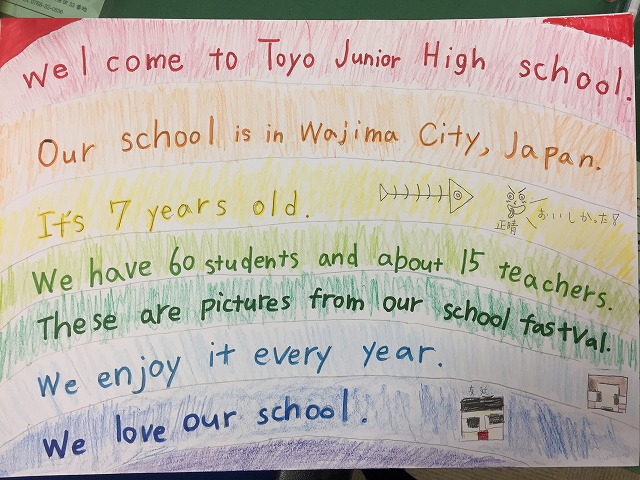 welcome to Toyo Junior High school.
Our school is in Wajima City, Japan.
It's 7 years old.
おいしかった!
正晴
We have 60 students and about 15 teachers.
These are pictures from our school fastval.
We enjoy it every year.
We love our school.